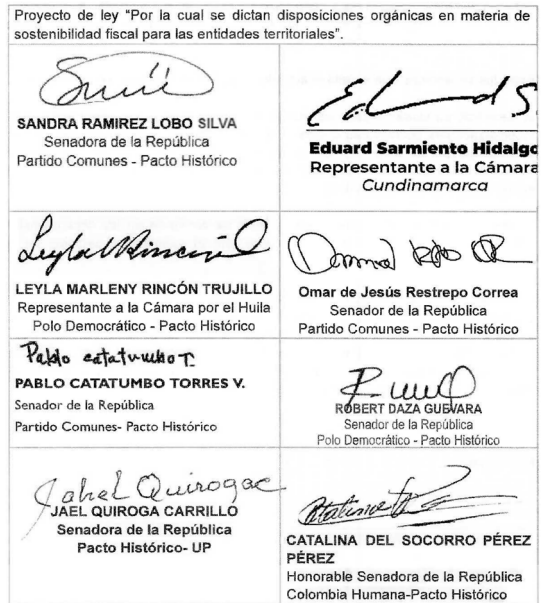 Proyecto de ley “Por la cual se dictan disposiciones orgánicas en materia de
sostenibilidad fiscal para las entidades territoriales”.
SANDRA RAMIREZ LOBO SILVA
Senadora de la República
Partido Comunes - Pacto Histórico
Eduard S
Eduard Sarmiento Hidalgo
Representante a la Cámara
Cundinamarca
LEYLA MARLENY RINCÓN TRUJILLO
Representante a la Cámara por el Huila
Polo Democrático - Pacto Histórico
Omar de Jesús Restrepo Correa
Senador de la República
Partido Comunes - Pacto Histórico
Pablo catatumbo T.
PABLO CATATUMBO TORRES V.
Senador de la República
Partido Comunes- Pacto Histórico
RÓBERT DAZA GUEVARA
Senador de la República
Polo Democrático - Pacto Histórico
Jahel Quirogac
JAEL QUIROGA CARRILLO
Senadora de la República
Pacto Histórico- UP
CATALINA DEL SOCORRO PÉREZ
PÉREZ
Honorable Senadora de la República
Colombia Humana-Pacto Histórico